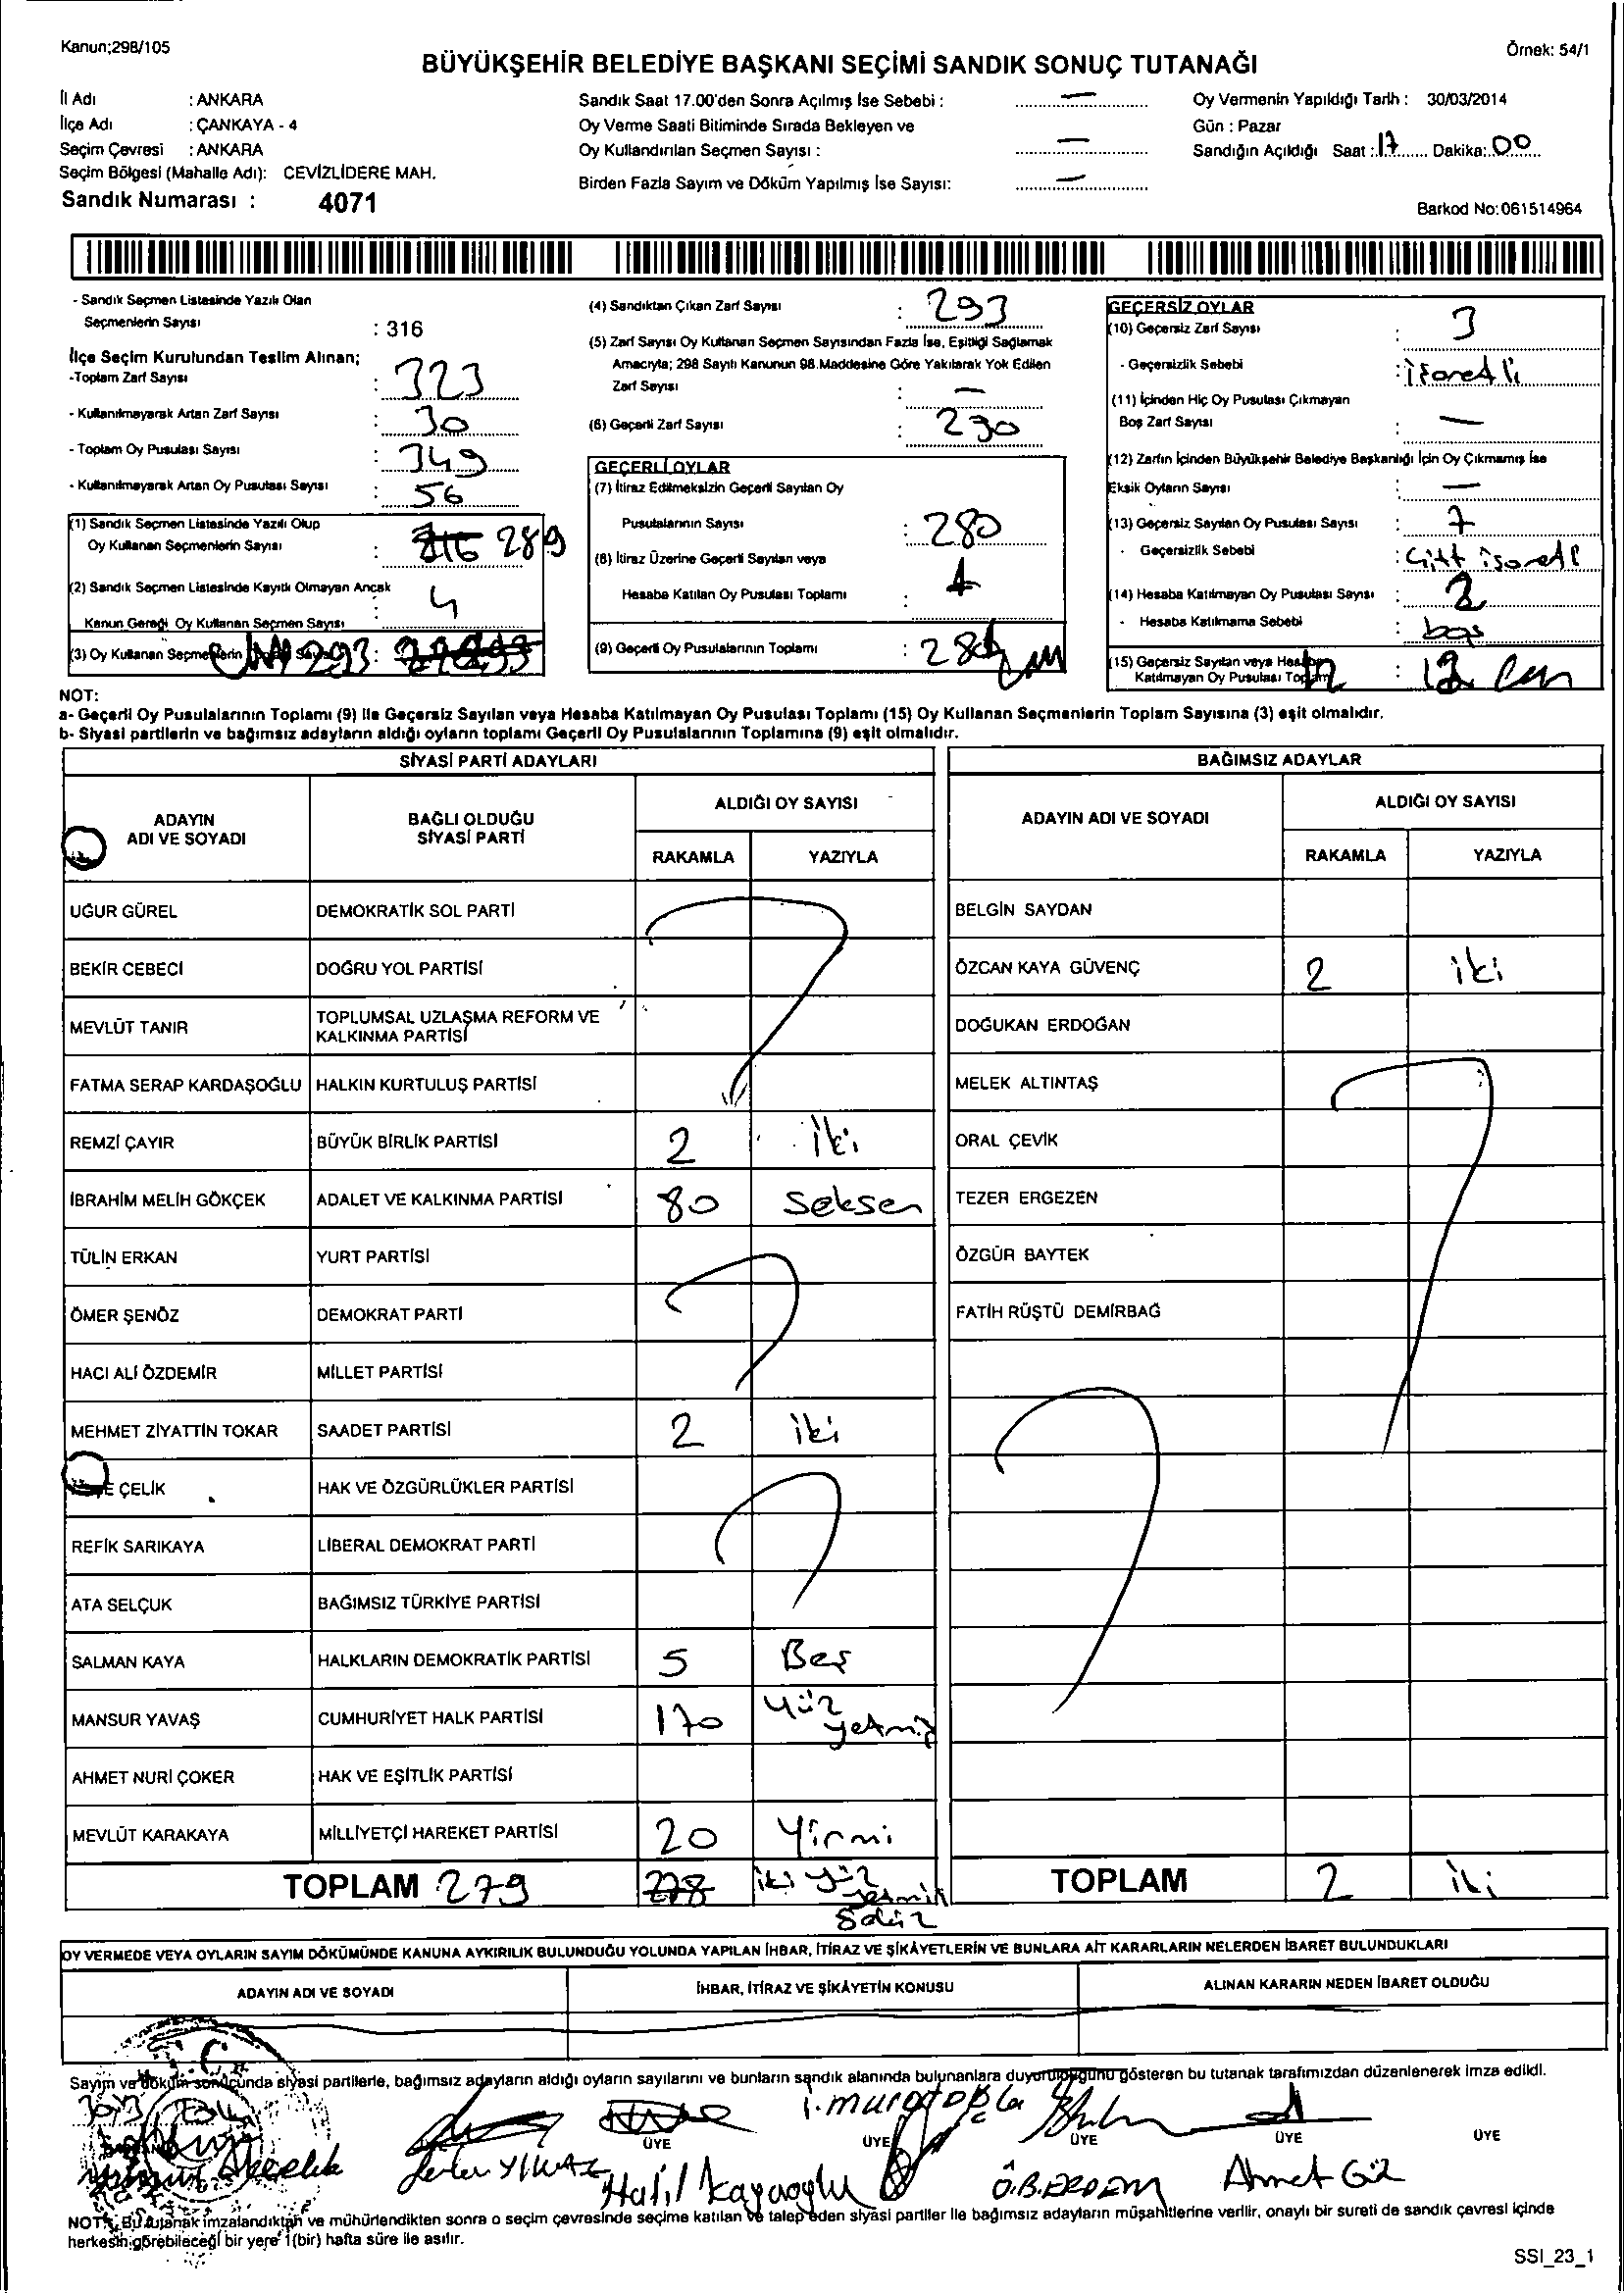 Kanun;298/105
Örnek: 54/1
BÜYÜKŞEHİR BELEDİYE BAŞKANI SEÇİMİ SANDIK SONUÇ TUTANAĞI
İl Adı : ANKARA
İlçe Adı : ÇANKAYA - 4
Seçim Çevresi : ANKARA
Seçim Bölgesi (Mahalle Adı): CEVİZLİDERE MAH.
Sandık Numarası : 4071
Sandık Saat 17.00'den Sonra Açılmış İse Sebebi : —
Oy Verme Saati Bitiminde Sırada Bekleyen ve
Oy Kullandırılan Seçmen Sayısı : —
Birden Fazla Sayım ve Döküm Yapılmış İse Sayısı: —
Oy Vermenin Yapıldığı Tarih : 30/03/2014
Gün : Pazar
Sandığın Açıldığı Saat : 17 Dakika: 00
Barkod No:061514964
- Sandık Seçmen Listesinde Yazılı Olan
Seçmenlerin Sayısı : 316
İlçe Seçim Kurulundan Teslim Alınan;
-Toplam Zarf Sayısı : 323
- Kullanılmayarak Artan Zarf Sayısı : 30
- Toplam Oy Pusulası Sayısı : 349
- Kullanılmayarak Artan Oy Pusulası Sayısı : 56
(1) Sandık Seçmen Listesinde Yazılı Olup
Oy Kullanan Seçmenlerin Sayısı : 316 289
(2) Sandık Seçmen Listesinde Kayıtlı Olmayan Ancak
Kanun Gereği Oy Kullanan Seçmen Sayısı : 4
(3) Oy Kullanan Seçmenlerin 293 :
(4) Sandıktan Çıkan Zarf Sayısı : 293
(5) Zarf Sayısı Oy Kullanan Seçmen Sayısından Fazla İse, Eşitliği Sağlamak
Amacıyla; 298 Sayılı Kanunun 98.Maddesine Göre Yakılarak Yok Edilen
Zarf Sayısı : —
(6) Geçerli Zarf Sayısı : 290
GEÇERLİ OYLAR
(7) İtiraz Edilmeksizin Geçerli Sayılan Oy
Pusulalarının Sayısı : 280
(8) İtiraz Üzerine Geçerli Sayılan veya
Hesaba Katılan Oy Pusulası Toplamı : 1
(9) Geçerli Oy Pusulalarının Toplamı : 281
GEÇERSİZ OYLAR
(10) Geçersiz Zarf Sayısı : 3
- Geçersizlik Sebebi : işaretli
(11) İçinden Hiç Oy Pusulası Çıkmayan
Boş Zarf Sayısı : —
(12) Zarfın İçinden Büyükşehir Belediye Başkanlığı İçin Oy Çıkmamış İse
Eksik Oyların Sayısı : —
(13) Geçersiz Sayılan Oy Pusulası Sayısı : 7
- Geçersizlik Sebebi : Çift işaretli
(14) Hesaba Katılmayan Oy Pusulası Sayısı : 2
- Hesaba Katılmama Sebebi : boş
(15) Geçersiz Sayılan veya Hesaba
Katılmayan Oy Pusulası Toplamı : 12
NOT:
a- Geçerli Oy Pusulalarının Toplamı (9) ile Geçersiz Sayılan veya Hesaba Katılmayan Oy Pusulası Toplamı (15) Oy Kullanan Seçmenlerin Toplam Sayısına (3) eşit olmalıdır.
b- Siyasi partilerin ve bağımsız adayların aldığı oyların toplamı Geçerli Oy Pusulalarının Toplamına (9) eşit olmalıdır.
SİYASİ PARTİ ADAYLARI
ADAYIN ADI VE SOYADI
BAĞLI OLDUĞU SİYASİ PARTİ
ALDIĞI OY SAYISI
RAKAMLA YAZIYLA
UĞUR GÜREL DEMOKRATİK SOL PARTİ
BEKİR CEBECİ DOĞRU YOL PARTİSİ
MEVLÜT TANIR TOPLUMSAL UZLAŞMA REFORM VE KALKINMA PARTİSİ
FATMA SERAP KARDAŞOĞLU HALKIN KURTULUŞ PARTİSİ
REMZİ ÇAYIR BÜYÜK BİRLİK PARTİSİ 2 iki
İBRAHİM MELİH GÖKÇEK ADALET VE KALKINMA PARTİSİ 80 Seksen
TÜLİN ERKAN YURT PARTİSİ
ÖMER ŞENÖZ DEMOKRAT PARTİ
HACI ALİ ÖZDEMİR MİLLET PARTİSİ
MEHMET ZİYATTİN TOKAR SAADET PARTİSİ 2 iki
ÇELİK HAK VE ÖZGÜRLÜKLER PARTİSİ
REFİK SARIKAYA LİBERAL DEMOKRAT PARTİ
ATA SELÇUK BAĞIMSIZ TÜRKİYE PARTİSİ
SALMAN KAYA HALKLARIN DEMOKRATİK PARTİSİ 5 Beş
MANSUR YAVAŞ CUMHURİYET HALK PARTİSİ 170 Yüz yetmiş
AHMET NURİ ÇOKER HAK VE EŞİTLİK PARTİSİ
MEVLÜT KARAKAYA MİLLİYETÇİ HAREKET PARTİSİ 20 Yirmi
TOPLAM 279 278 iki yüz yetmiş
BAĞIMSIZ ADAYLAR
ADAYIN ADI VE SOYADI
ALDIĞI OY SAYISI
RAKAMLA YAZIYLA
BELGİN SAYDAN
ÖZCAN KAYA GÜVENÇ 2 iki
DOĞUKAN ERDOĞAN
MELEK ALTINTAŞ
ORAL ÇEVİK
TEZER ERGEZEN
ÖZGÜR BAYTEK
FATİH RÜŞTÜ DEMİRBAĞ
TOPLAM 2 iki
OY VERMEDE VEYA OYLARIN SAYIM DÖKÜMÜNDE KANUNA AYKIRILIK BULUNDUĞU YOLUNDA YAPILAN İHBAR, İTİRAZ VE ŞİKÂYETLERİN VE BUNLARA AİT KARARLARIN NELERDEN İBARET BULUNDUKLARI
ADAYIN ADI VE SOYADI
İHBAR, İTİRAZ VE ŞİKÂYETİN KONUSU
ALINAN KARARIN NEDEN İBARET OLDUĞU
Sayım ve döküm sonucunda siyasi partilerle, bağımsız adayların aldığı oyların sayılarını ve bunların sandık alanında bulunanlara duyurulduğunu gösteren bu tutanak tarafımızdan düzenlenerek imza edildi.
ÜYE ÜYE ÜYE ÜYE ÜYE
Halil Kayaoğlu Ö.B.ERDEM Ahmet Gül
NOT: Bu tutanak imzalandıktan ve mühürlendikten sonra o seçim çevresinde seçime katılan ve talep eden siyasi partiler ile bağımsız adayların müşahitlerine verilir, onaylı bir sureti de sandık çevresi içinde
herkesin görebileceği bir yere 1(bir) hafta süre ile asılır.
SSI_23_1